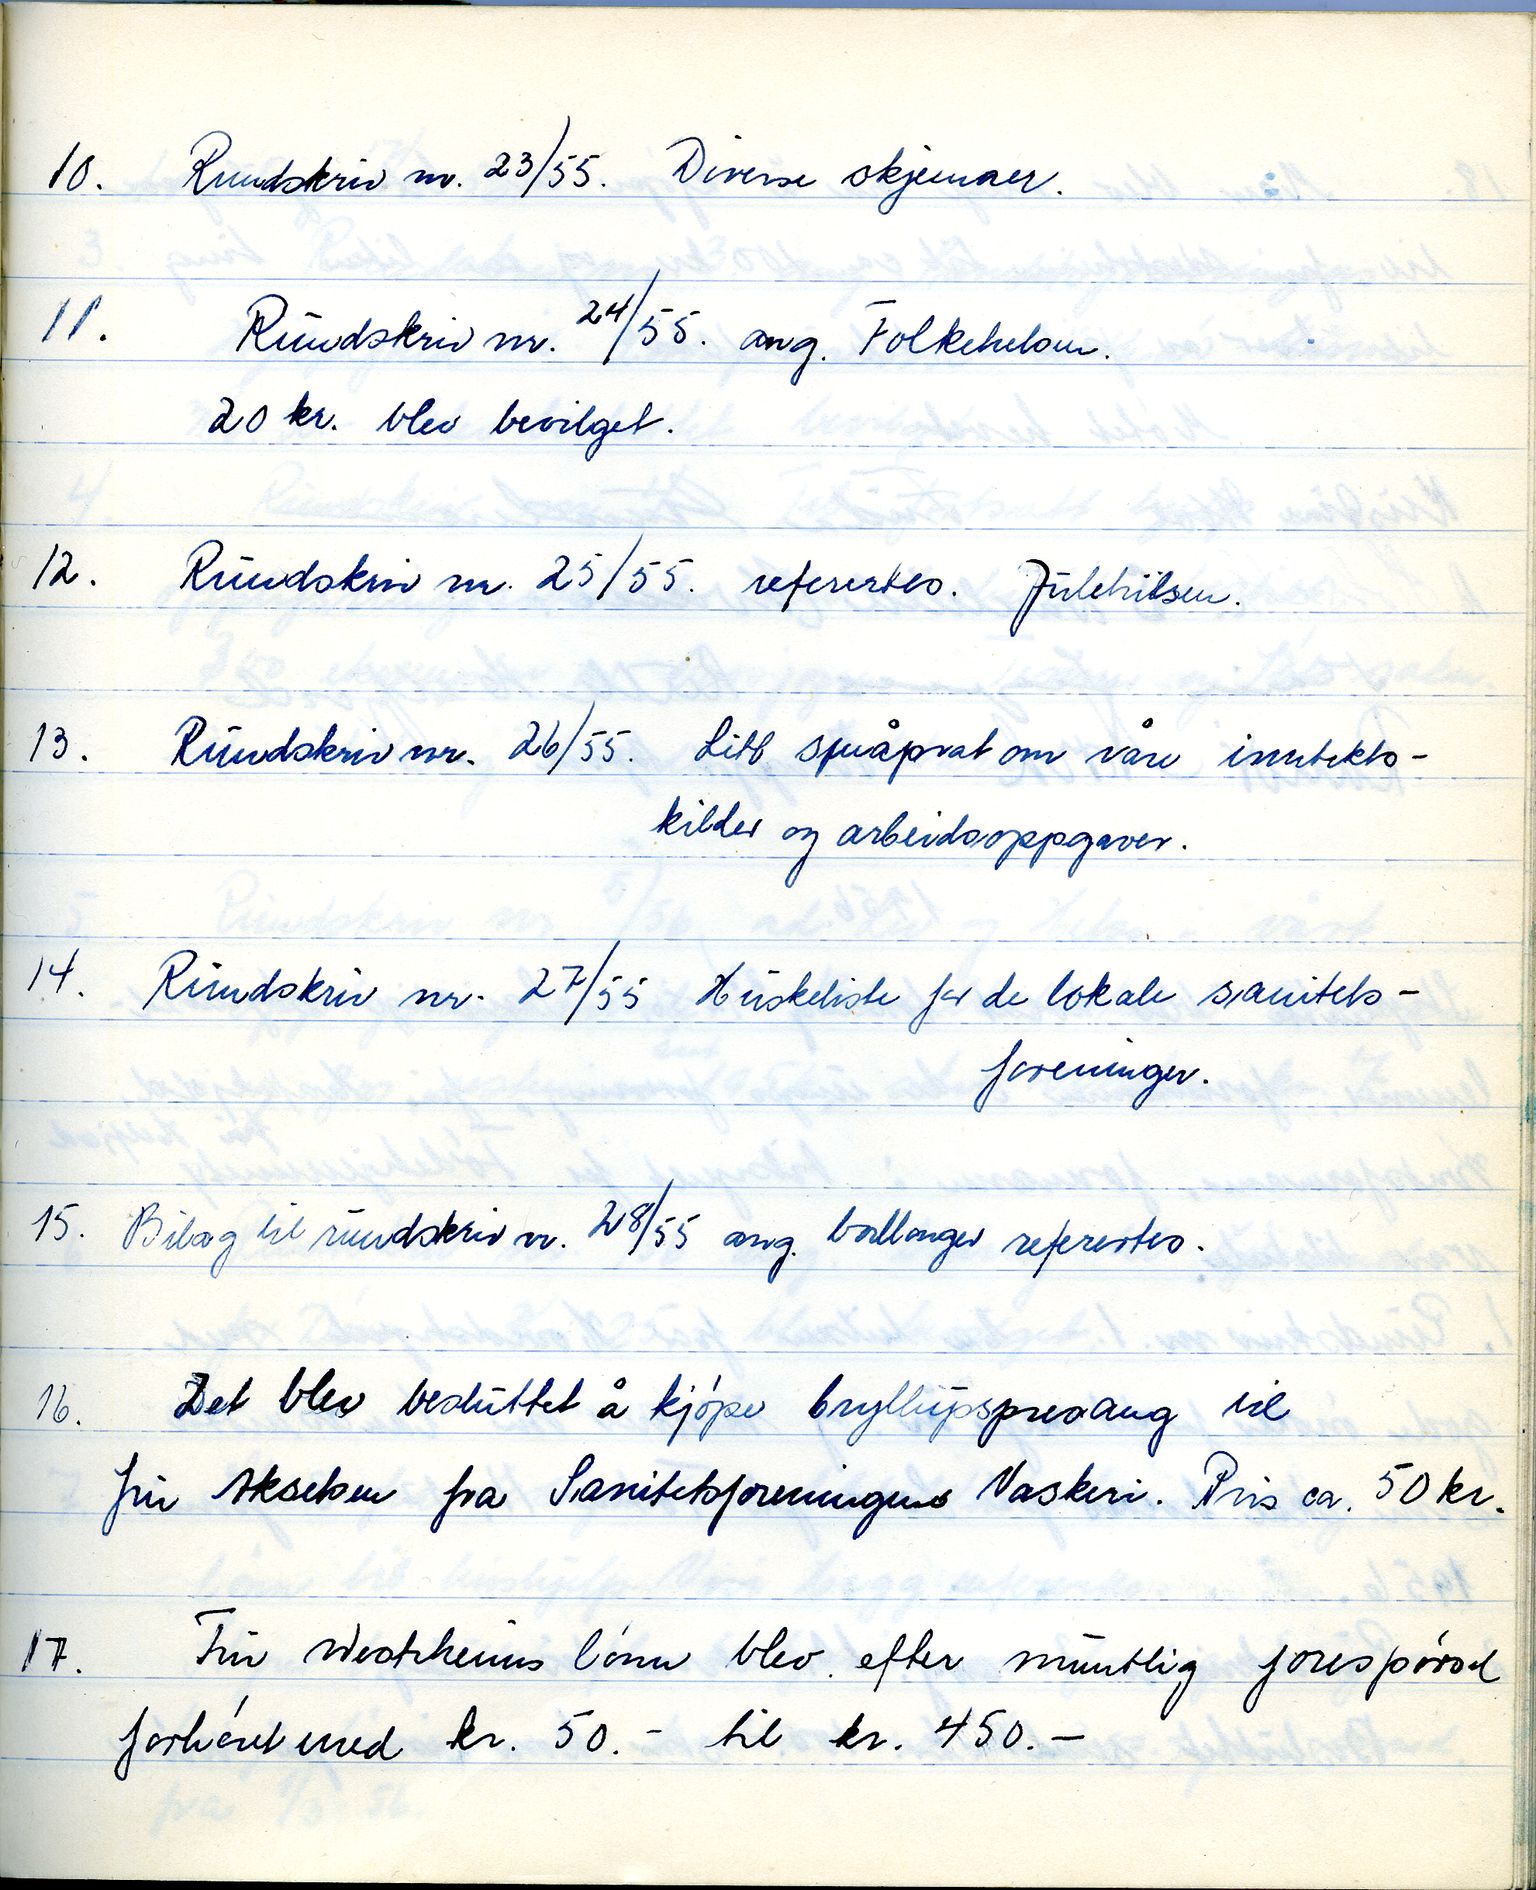 10. Rundskriv nr. 23/55. Diverse skjemaer.
11. Rundskriv nr. 24/55. ang. Folkehelsen.
20 kr. blev bevilget.
12. Rundskriv nr. 25/55. refereres. Julehilsen.
13. Rundskriv nr. 26/55. Litt småprat om våre inntekts-
kilder og arbeidsoppgaver.
14. Rundskriv nr. 27/55 Huskeliste for de lokale sanitets-
foreninger.
15. Bilag til rundskriv nr. 28/55 ang. ballonger refertes.
16. Det blev besluttet å kjøpe bryllupspresang til
fru Akselsen fra Sanitetsforeningens Vaskeri. Pris ca. 50 kr.
17. Fru Westrheims lønn blev efter muntlig forespørsel
forhøiet med kr. 50.- til kr. 450.-